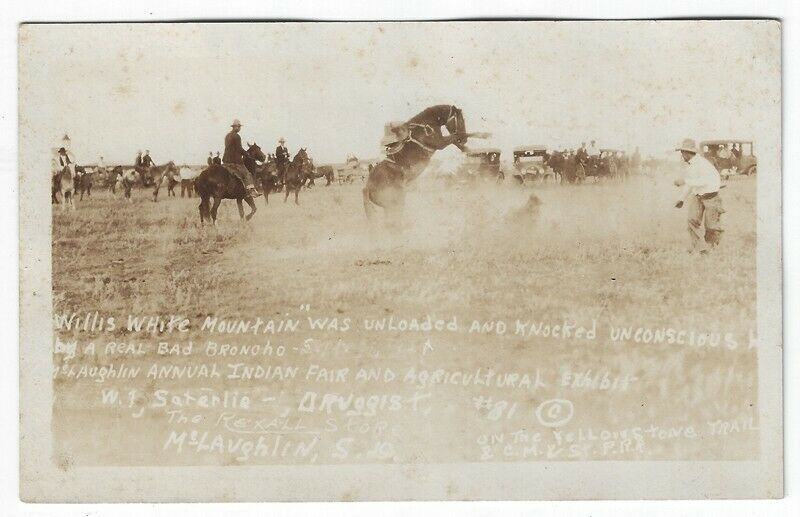 Willis White Mountain" was unloaded and knocked unconscious
by a real bad Broncho -
McLaughlin Annual Indian Fair and Agricultural Exhibit
W.I. Saterlie -, Druggist, #81 ©
The Rexall Stor.
McLaughlin, S.D.
on the Yellowstone Trail
& C.M. & St. P. R.R.